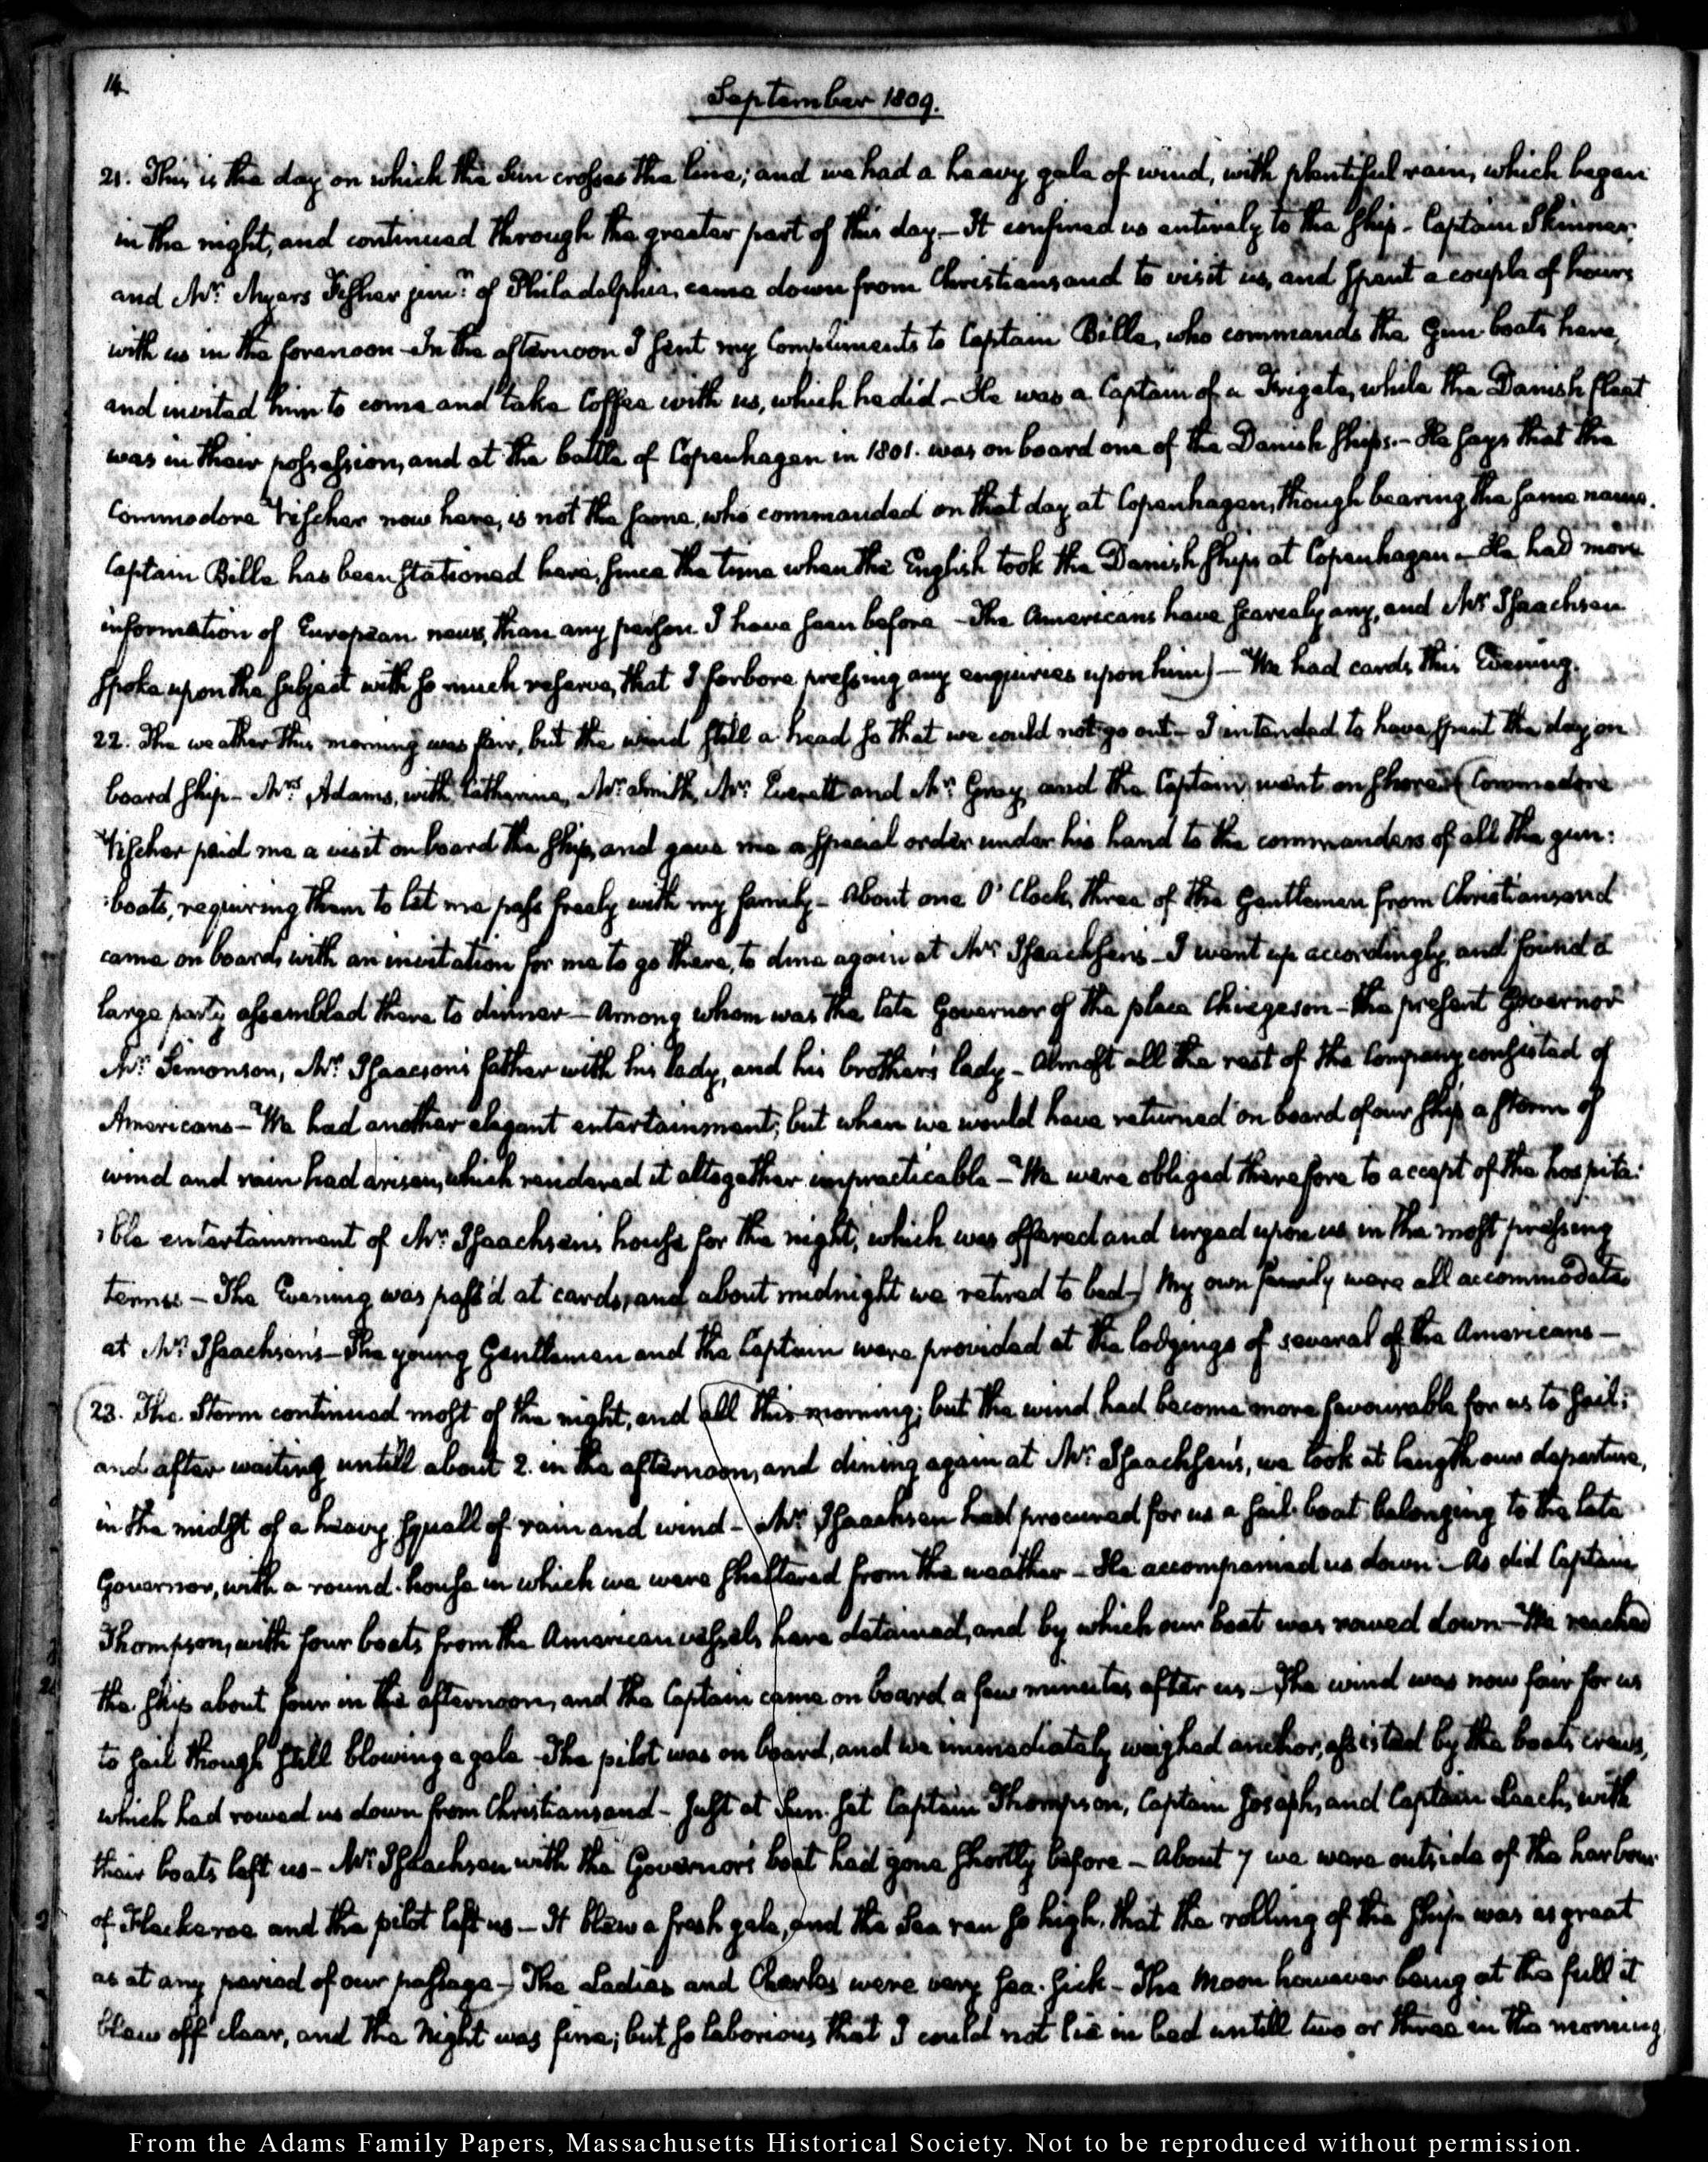 14
September 1809.
21. This is the day on which the Sun crosses the line; and we had a heavy gale of wind, with plentiful rain, which began
in the night, and continued through the greater part of this day — It confined us entirely to the ship — Captain Skinner,
and Mr. Myers Fisher junr. of Philadelphia, came down from Christiansand to visit us, and spent a couple of hours
with us in the forenoon — In the afternoon I sent my Compliments to Captain Bille, who commands the Gun-boats here,
and invited him to come and take Coffee with us, which he did — He was a Captain of a Frigate, while the Danish fleet
was in their possession, and at the battle of Copenhagen in 1801. was on board one of the Danish ships. — He says that the
Commodore Fischer now here, is not the same, who commanded on that day at Copenhagen, though bearing the same name.
Captain Bille has been stationed here, since the time when the English took the Danish ships at Copenhagen — He had more
information of European news, than any person I have seen before — The Americans have scarcely any, and Mr. Isaachsen
spoke upon the subject with so much reserve, that I forbore pressing any enquiries upon him) — We had cards this Evening.
22. The weather this morning was fair, but the wind still a head so that we could not go out — I intended to have spent the day on
board ship — Mrs. Adams, with Catherine, Mr. Smith, Mr. Everett and Mr. Gray, and the Captain went on shore (Commodore
Fischer paid me a visit on board the ship, and gave me a special order under his hand to the commanders of all the gun:
:boats, requiring them to let me pass freely with my family — About one O' Clock, three of the Gentlemen from Christiansand
came on board, with an invitation for me to go there, to dine again at Mr. Isaachsen's — I went up accordingly, and found a
large party assembled there to dinner — Among whom was the late Governor of the place Thiegeson — the present Governor
Mr. Simonson, Mr. Isaacson's father with his lady, and his brother's lady — Almost all the rest of the Company consisted of
Americans — We had another elegant entertainment; but when we would have returned on board of our ship a storm of
wind and rain had arisen, which rendered it altogether impracticable — We were obliged therefore to accept of the hospita:
:ble entertainment of Mr. Isaachsen's house for the night, which was offered and urged upon us in the most pressing
terms — The Evening was pass'd at cards, and about midnight we retired to bed) My own family were all accommodated
at Mr. Isaachsen's — The young Gentlemen and the Captain were provided at the lodgings of several of the Americans —
(23. The Storm continued most of the night, and all this morning; but the wind had become more favourable for us to sail;
and after waiting untill about 2. in the afternoon, and dining again at Mr. Isaachsen's, we took at length our departure,
in the midst of a heavy squall of rain and wind — Mr. Isaachsen had procured for us a sail-boat belonging to the late
Governor, with a round-house in which we were sheltered from the weather — He accompanied us down — As did Captain
Thompson, with four boats from the American vessels here detained, and by which our boat was rowed down — We reached
the ship about four in the afternoon, and the Captain came on board a few minutes after us — The wind was now fair for us
to sail though still blowing a gale — The pilot was on board, and we immediately weighed anchor, assisted by the boats crews,
which had rowed us down from Christiansand — Just at Sun-set Captain Thompson, Captain Joseph, and Captain Leach, with
their boats left us — Mr. Isaachsen with the Governor's boat had gone shortly before — About 7 we were outside of the harbour
of Fleckeroe and the pilot left us — It blew a fresh gale, and the Sea ran so high, that the rolling of the ship was as great
as at any period of our passage — The Ladies and Charles were very sea-sick — The Moon however being at the full it
blew off clear, and the Night was fine; but so laborious that I could not lie in bed untill two or three in the morning
From the Adams Family Papers, Massachusetts Historical Society. Not to be reproduced without permission.